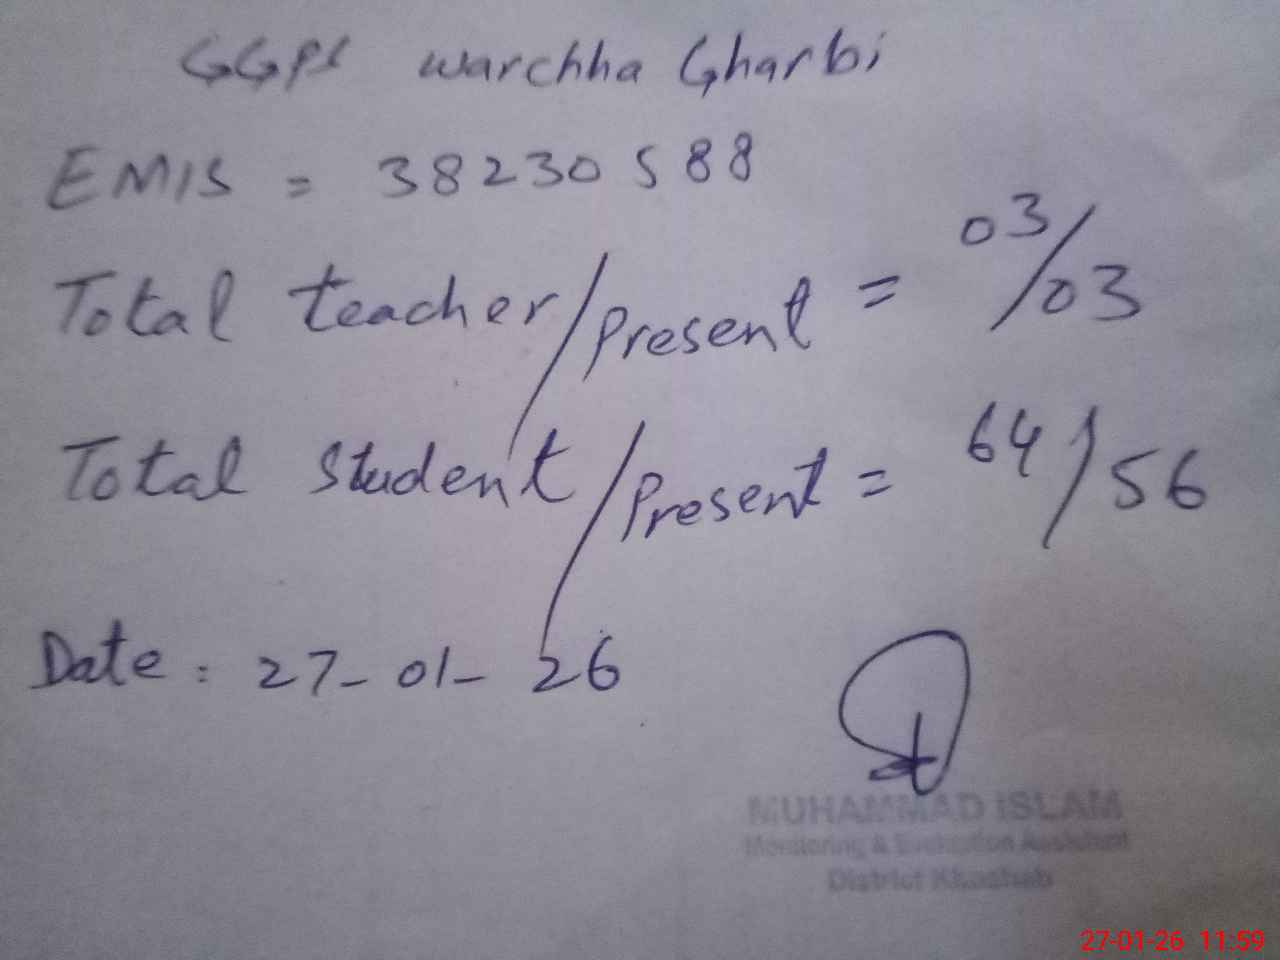 GGPS warchha Gharbi
EMIS = 38230588
Total teacher/Present = 03/03
Total student/Present = 64/56
Date: 27-01-26
MUHAMMAD ISLAM
Monitoring & Evaluation Assistant
District Khushab
27-01-26 11:59